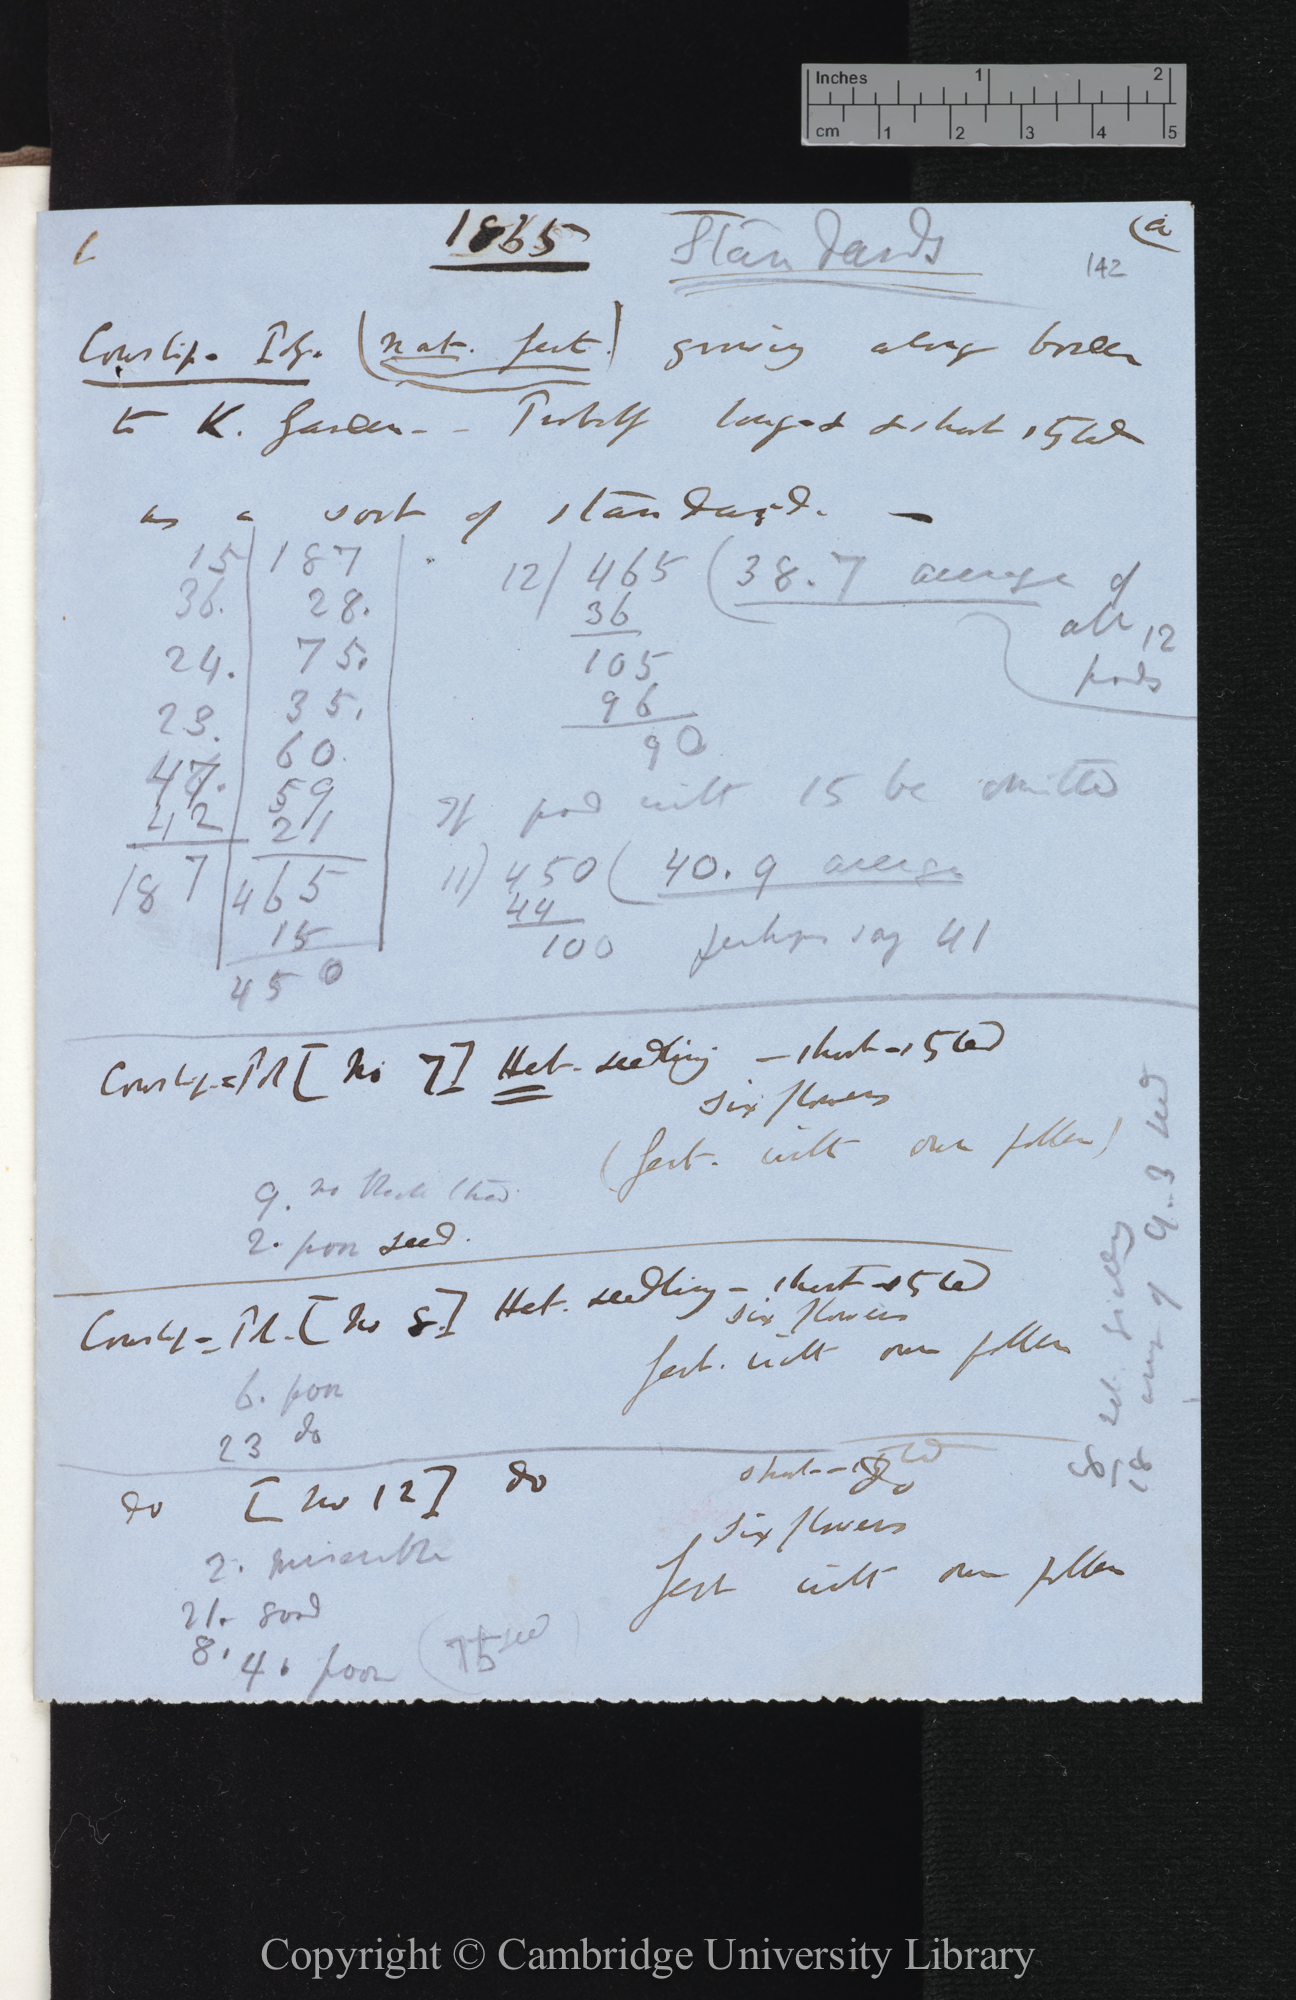 Inches 1 2
cm 1 2 3 4 5
1865 Standards (a
142
Cowslip. (nat. fert.) growing along border
to K. Garden - Probably long-d & short styled
as a sort of standard. —
15 187
36. 28.
24. 75.
23. 35.
47. 60.
42 59
21
187 465
15
450
12) 465 (38.7 average of
all 12
pods
36
105
96
90
If pod with 15 be omitted
11) 450 (40.9 average
44
100 perhaps say 41
Cowslip = [No 7] Het. seedling — short-styled
six flowers
(fert. with own pollen)
9. no
2. poor seed.
Cowslip = [No 8.] Het. seedling — short-styled
six flowers
fert. with own pollen
6. poor
23 do
do [No 12] do short-styled
do
six flowers
fert with own pollen
2. miserable
21. good
8. 4. poor (75 seed)
8
18 9.3 seed
Copyright © Cambridge University Library